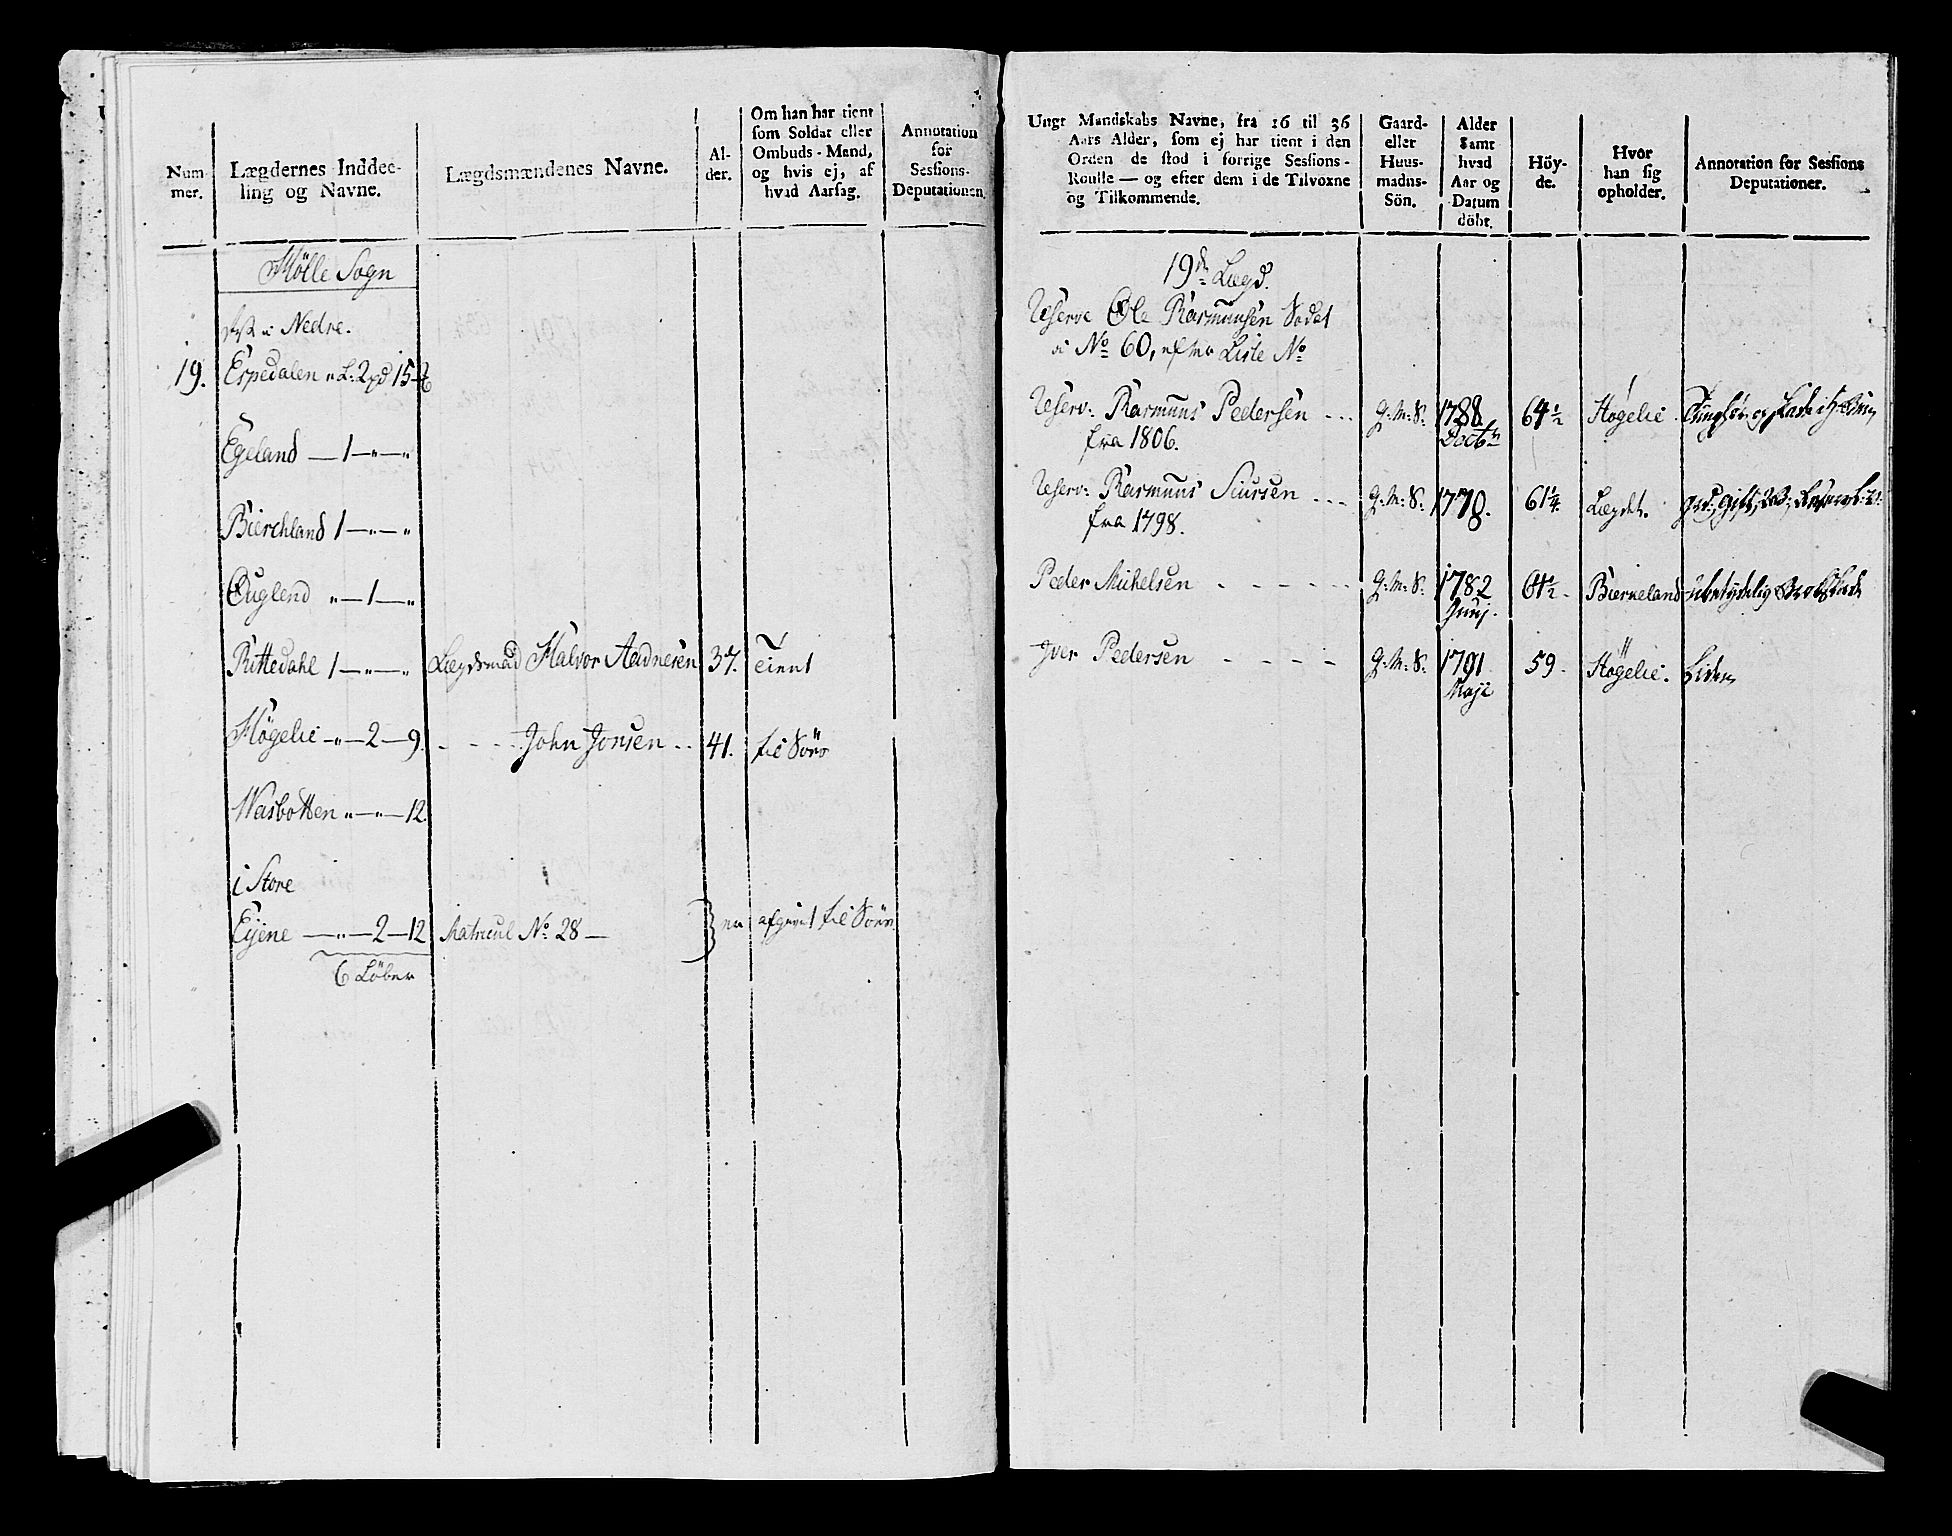 Num-
mer.
Lægdernes Inddee-
ling og Navne.
Lægdsmændenes Navne.
Al-
der.
Om han har tient
som Soldat eller
Ombuds-Mand,
og hvis ej, af
hvad Aarsag.
Annotation
for
Sessions-
Deputationen.
Hölle Sogn
Nedre.
19. Espedalen 2 pd 15
Egeland — 1 — " — "
Bierchland 1 — " — "
Ouglend " — 1 — "
Rittedahl 1 — " — " Lægdsmād Halvor Aadnesen 37. Tient
Högelie — " — 2 — 9. - - - John Jonsen - - 41. til Söes
Wasbotten " — " — 12.
i Store
Eyene — " — 2 — 12 Matricul No. 28 — er afgivet til Söes
6 Löber
Ungt Mandskabs Navne, fra 16 til 36
Aars Alder, som ej har tient i den
Orden de stod i forrige Sessions-
Roulle — og efter dem i de Tilvoxne
og Tilkommende.
Gaard-
eller
Huus-
mands-
Sön.
Alder
samt
hvad
Aar og
Datum
döbt.
Höy-
de.
Hvor
han sig
opholder.
Annotation for Sessions
Deputationer.
19de Lægd.
Reserve Ole Rasmunsen Sodat
a No. 60, efter Liste No.
Reserv: Rasmuns Pedersen - - - G: M: S: 1788 64½ Högelie
fra 1806.
Reserv: Rasmuns Siursen - - - G: M: S: 1770. 61¼. Lægdet.
fra 1798.
Peder Michelsen - - - - - - G: M: S: 1782 64½ - Bierkeland ubetydelig
Junj.
Iver Pedersen - - - - - G: M: S: 1791 59 - Högelie. Liden
Maji